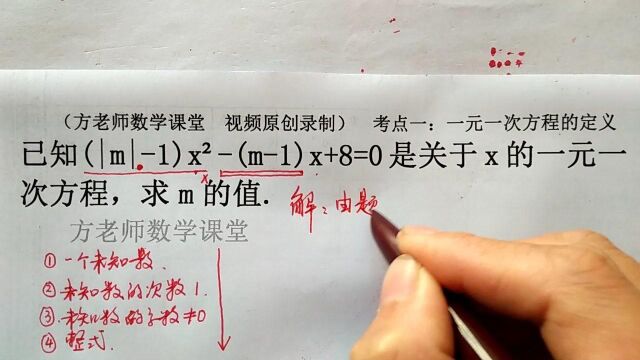 （方老师数学课堂 视频原创录制） 考点一：一元一次方程的定义
已知(|m|-1)x²-(m-1)x+8=0是关于x的一元一
次方程，求m的值.
解：由题
方老师数学课堂
① 一个未知数.
② 未知数的次数1.
③ 未知数的系数≠0
④ 整式.